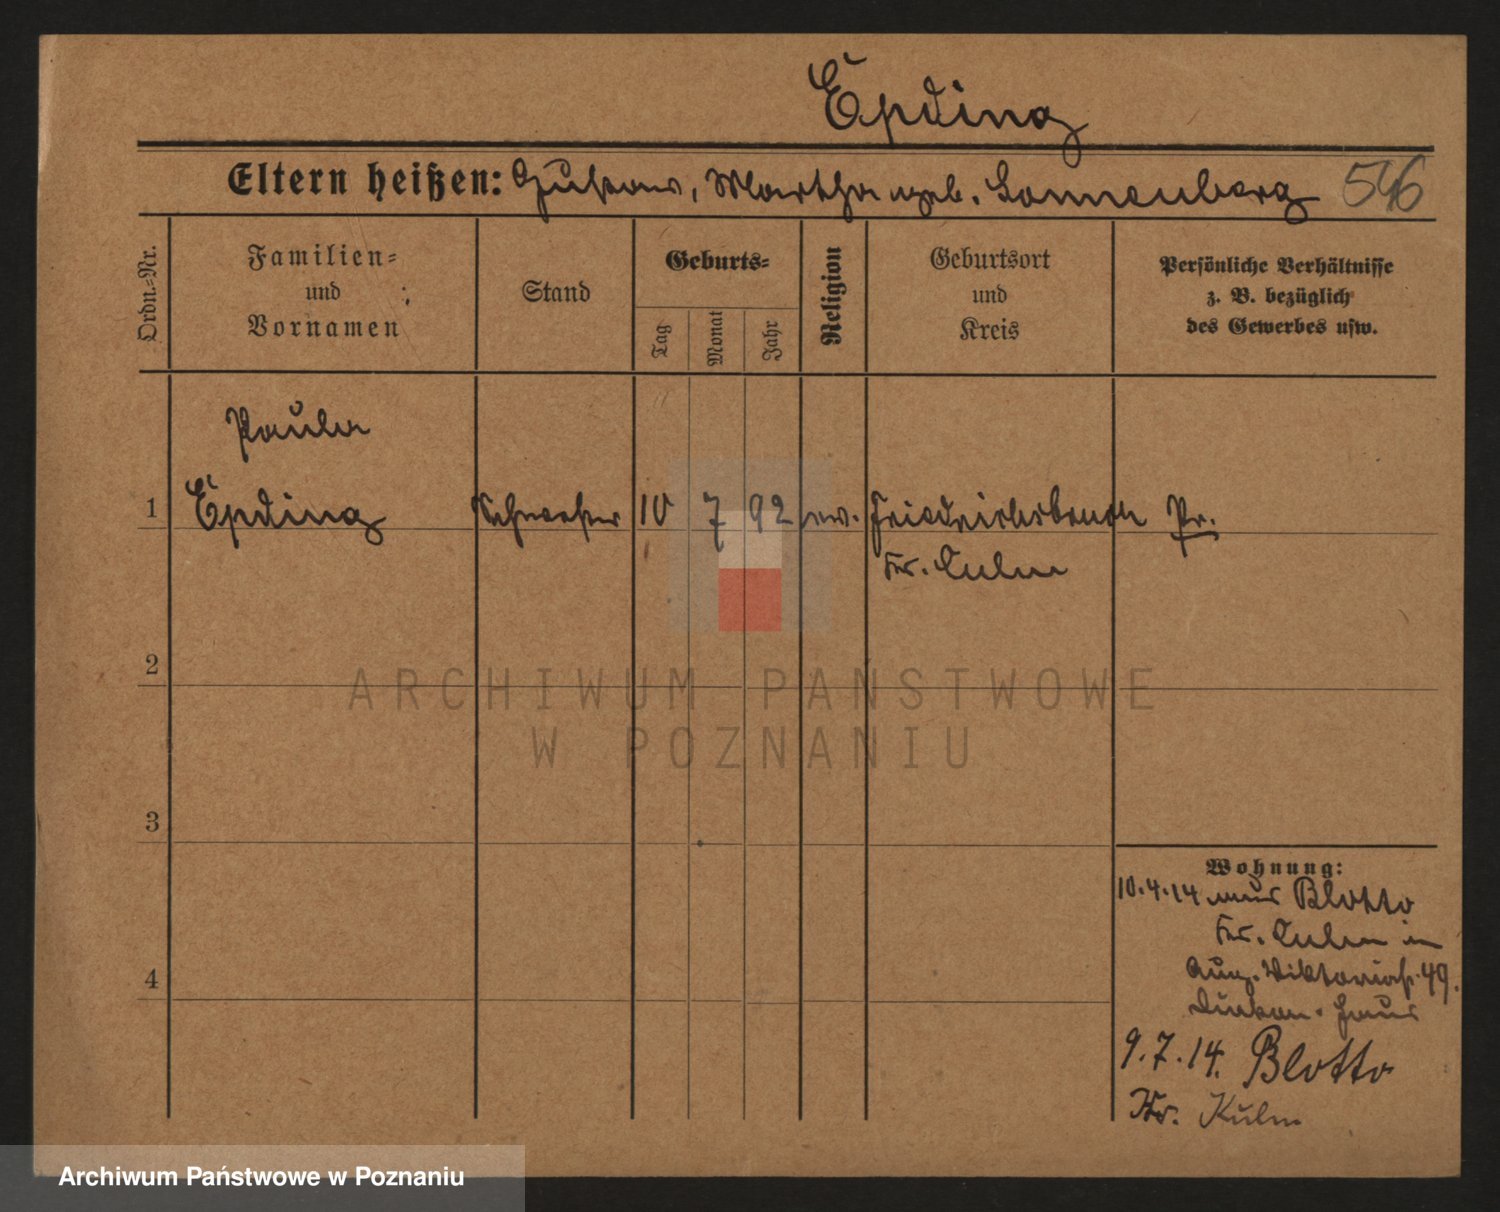 Epding
Eltern heißen: Gustav, Martha geb. Sonnenberg 546
Ordn.-Nr.
Familien-
und
Vornamen
Stand
Geburts-
Tag
Monat
Jahr
Religion
Geburtsort
und
Kreis
Persönliche Verhältnisse
z. B. bezüglich
des Gewerbes usw.
Paula
1 Epding Schwester 10 7 92 ev. Friedrichsbruch Pr.
Kr. Culm
2
ARCHIWUM PAŃSTWOWE
W POZNANIU
3
Wohnung:
10.4.14 aus Blotto
Kr. Culm in
4 Aug. Viktoriastr. 49.
Diakon. Haus
9.7.14. Blotto
Kr. Kulm
Archiwum Państwowe w Poznaniu